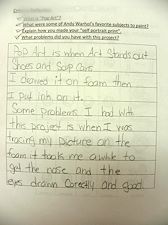 What is "Pop Art"?
What were some of Andy Warhol's favorite subjects to paint?
Explain how you made your "self portrait print".
What problems did you have with this project?
Pop Art is when Art Stands out
Shoes and Soup Cans
I drawed it on foam then
I put ink on it.
Some Problems I had with
this project is when I was
tracing my picture on the
foam it took me a while to
get the nose and the
eyes drawn Corectly and good.